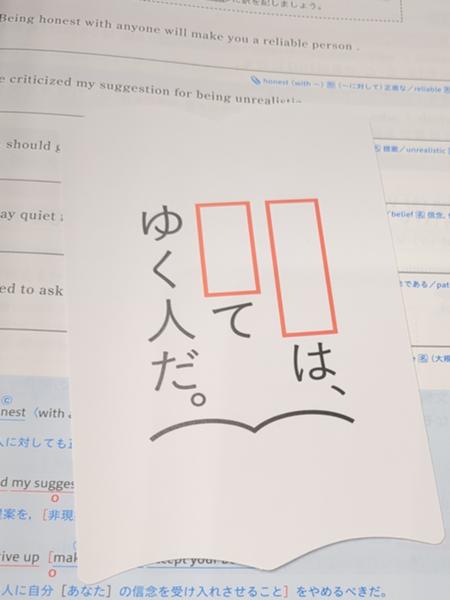 に訳を記しましょう。
Being honest with anyone will make you a reliable person .
honest〈with ~〉形（~に対して）正直な／reliable 形
e criticized my suggestion for being unrealistic
提案／unrealistic 形
should
ay quiet
belief 名 信念、
ed to ask
である／pat
名（大規
は、
て
ゆく人だ。
Ⓒ
nest〈with a
人に対しても正
d my sugges
O
提案を，［非現
ive up［mak
cept your
O
人に自分［あなた］の信念を受け入れさせること］をやめるべきだ。